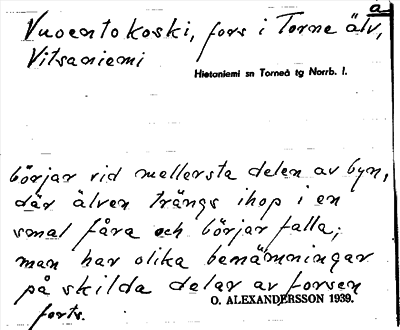 a
Vuoentokoski, fors i Torne älv,
Vitsaniemi
Hietaniemi sn Torneå tg Norrb. l.
börjar vid mellersta delen av byn,
där älven trängs ihop i en
smal fåra och börjar falla;
man har olika benämningar
på skilda delar av forsen
O. ALEXANDERSSON 1939.
forts.